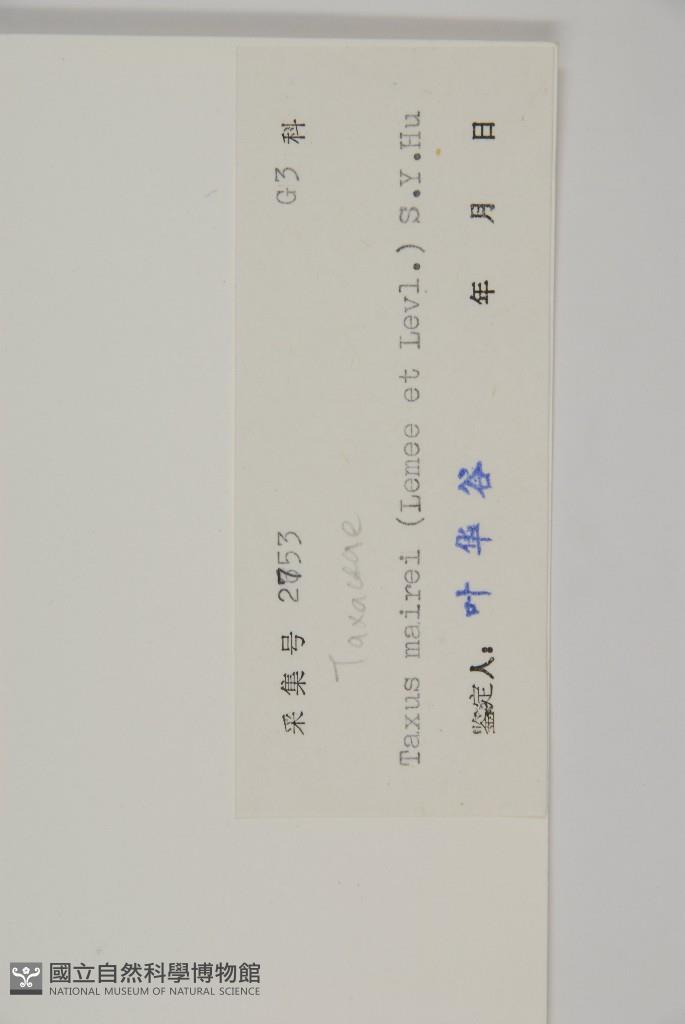 采集号 2753 G3 科
Taxaceae
Taxus mairei (Lemee et Levl.) S.Y.Hu
鉴定人: 叶华谷 年 月 日
國立自然科學博物館
NATIONAL MUSEUM OF NATURAL SCIENCE